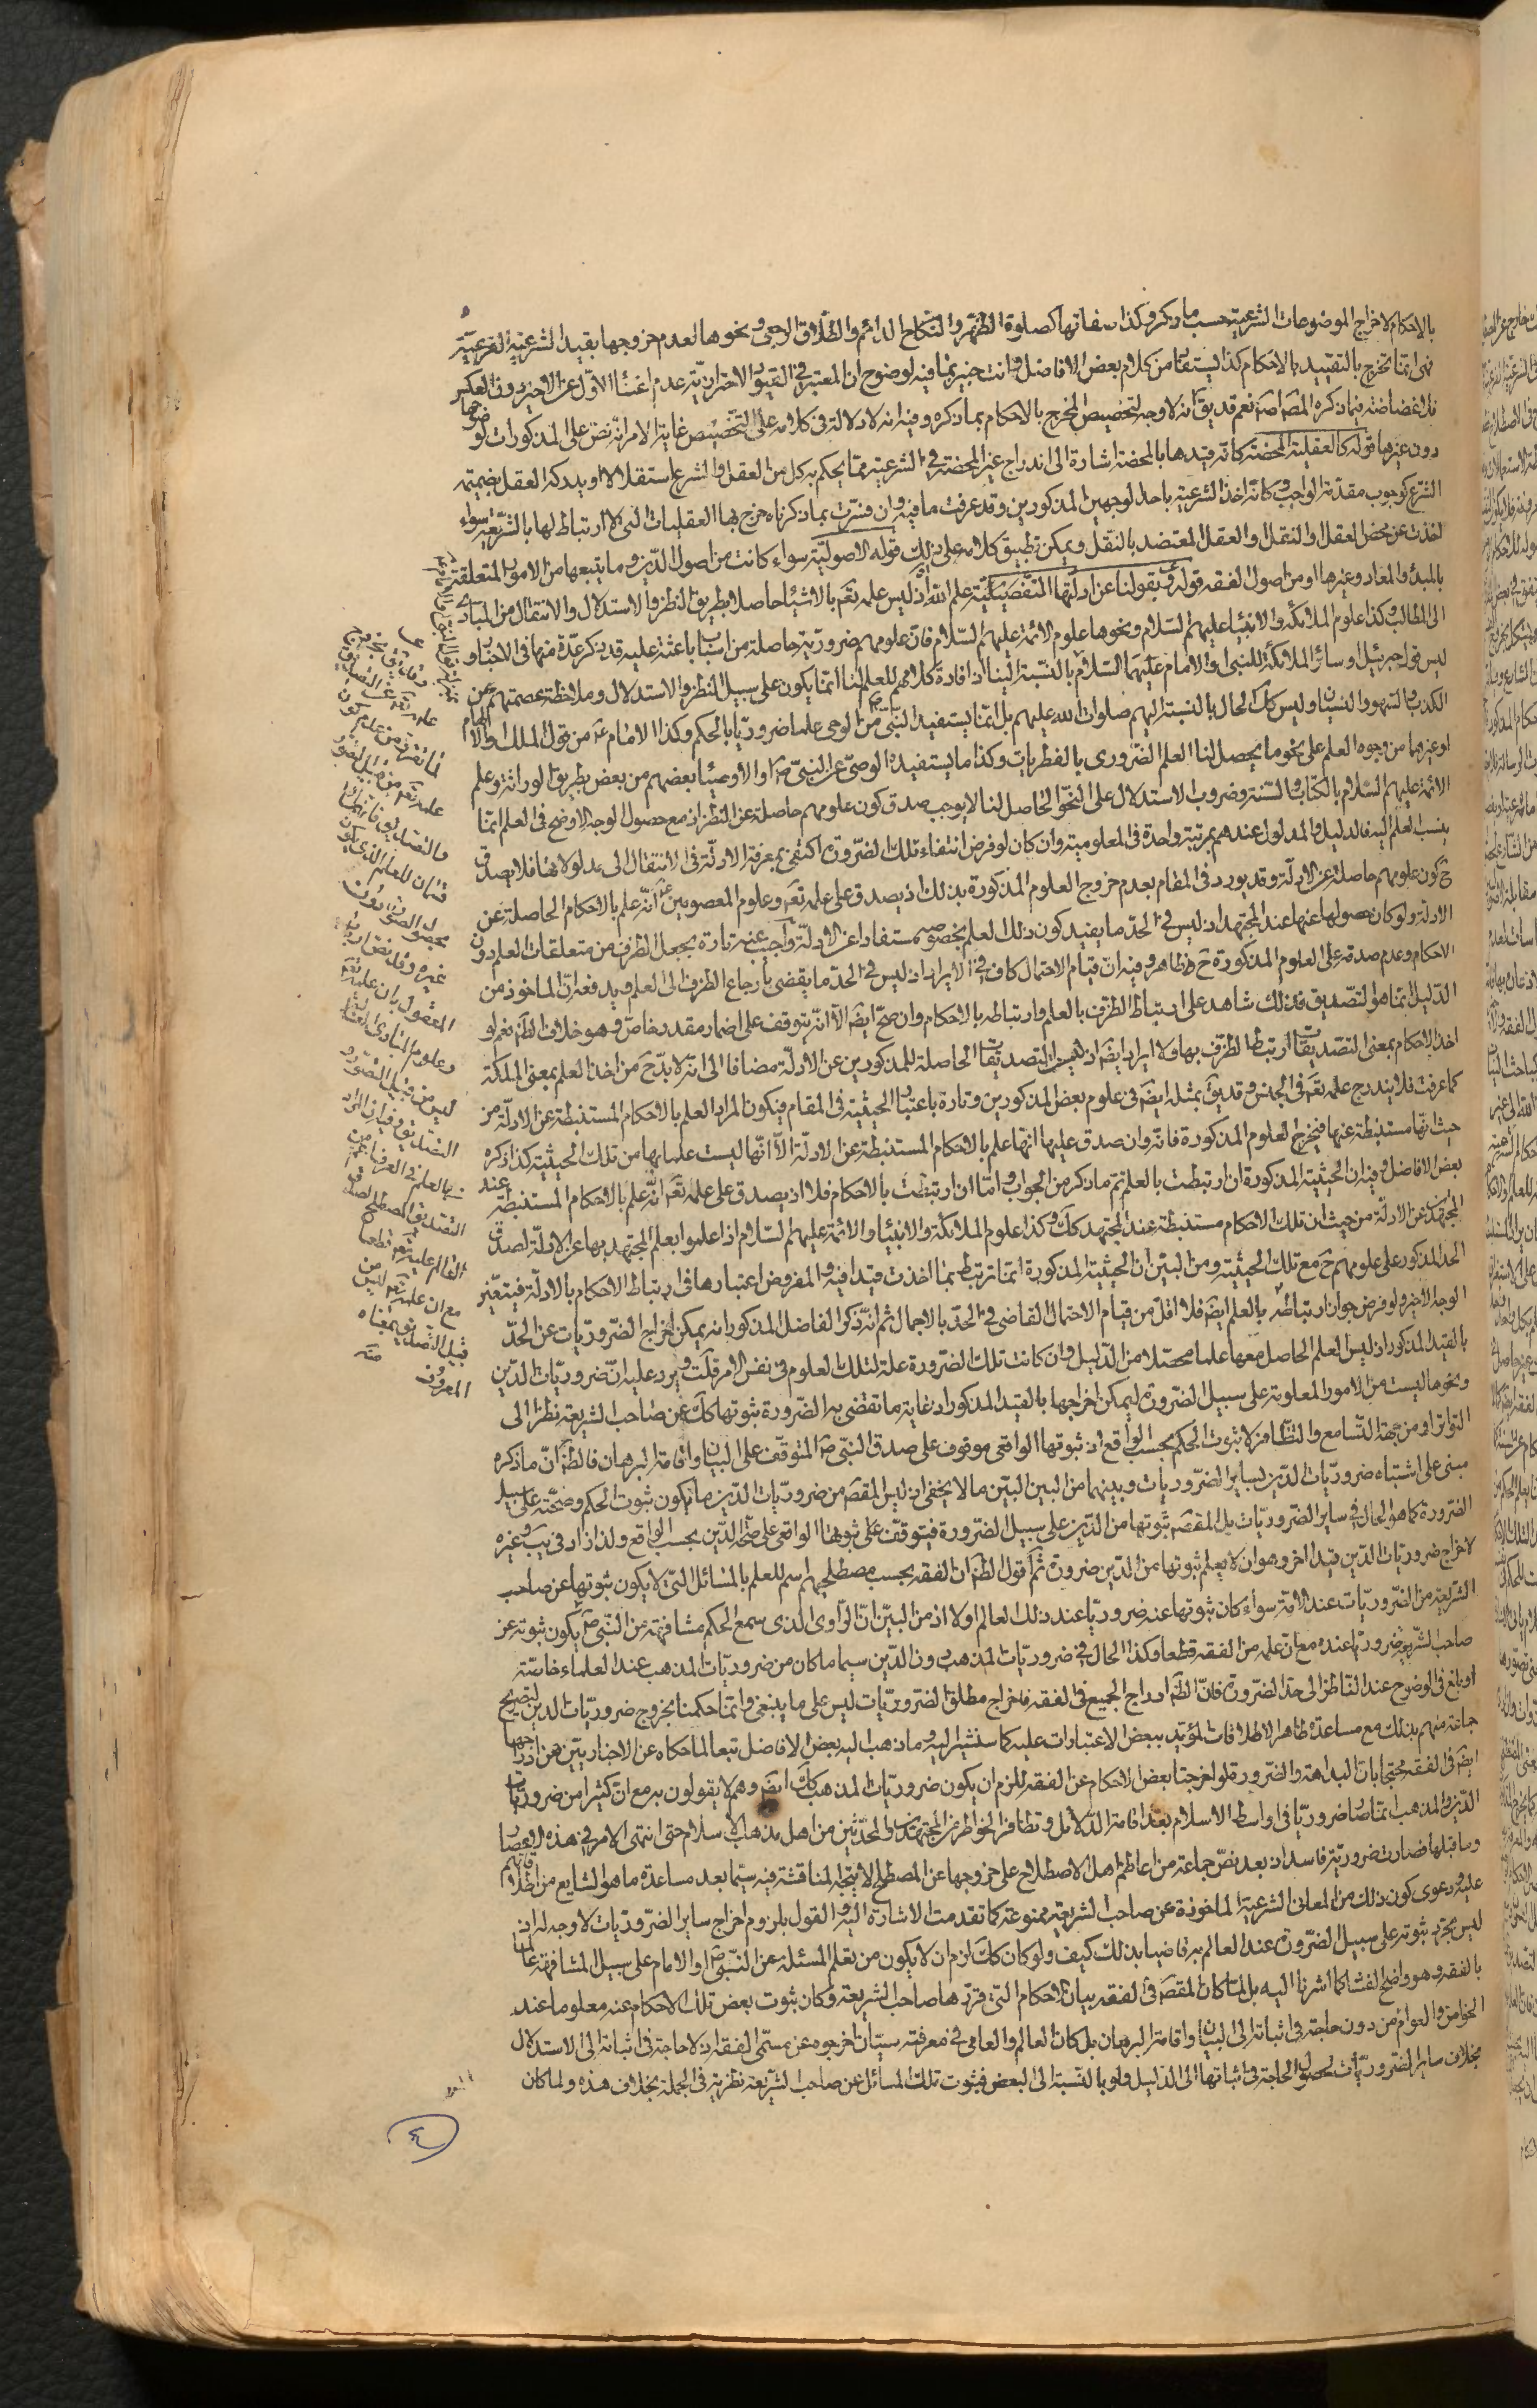 بالاحكام لاخراج الموضوعات الشرعية حسب ما ذكر وكذا صفاتها كصلوة الظهر والنكاح الدائم والطلاق الرجعى ونحوها لعدم خروجها بقيد الشرعية الفرعية
فهى انما تخرج بالتقييد بالاحكام كذا يستفاد من كلام بعض الافاضل وانت خبير بما فيه لوضوح ان المعتبر فى القيود الاحترازية عدم اغناء الاول عن الاخير دون العكس
فلا غضاضة فيما ذكره المصـ اصـ نعم قد يقـ انه لا وجه لتخصيص المخرج بالاحكام بما ذكره وفيه انه لا دلالة فى كلامه على التخصيص غاية الامر انه نص على المذكورات لوضوحها
دون غيرها قوله كالعقلية المحضة كانه قيدها بالمحضة اشارة الى اندراج غير المحضة فى الشرعية مما يحكم به كل من العقل والشرع استقلالا او يدركه العقل بضميمة
الشرع كوجوب مقدمة الواجب وكانه اخذ الشرعية باحد الوجهين المذكورين وقد عرفت ما فيه وان فسرت بما ذكرناه خرج بها العقليات التى لا ارتباط لها بالشريعة سواء
اخذت عن محض العقل او النقل او العقل المعتضد بالنقل ويمكن تطبيق كلامه على ذلك قوله الاصولية سواء كانت من اصول الدين وما يتبعها من الامور المتعلقة
بالمبدء والمعاد وغيرها او من اصول الفقه قوله وبقولنا عن ادلتها التفصيلية علم الله اذ ليس علمه تعـ بالاشياء حاصلا بطريق النظر والاستدلال والانتقال من المبادى
الى المطالب وكذا علوم الملائكة والانبياء عليهم السلام ونحوها علوم الائمة عليهم السلام فان علومهم ضرورية حاصلة من اسباب باعثة عليه قد ذكر عدة منها فى الاخبار و
ليس قول جبرئيل او سائر الملائكة للنبى او الامام عليهما السلام بالنسبة الينا اذ افادة كلامهم للعلم لنا انما يكون على سبيل النظر والاستدلال وملاحظة عصمتهم عن
الكذب والسهو والنسيان وليس كك الحال بالنسبة اليهم صلوات الله عليهم بل انما يستفيد النبى صـ من الوحى علما ضروريا بالحكم وكذا الامام عـ من قول الملك والالهام
او غيرهما من وجوه العلم على نحو ما يحصل لنا العلم الضرورى بالفطريات وكذا ما يستفيده الوصى عن النبى صـ او الاوصياء بعضهم من بعض بطريق الوراثة وعلم
الائمة عليهم السلام بالكتاب والسنة وضروب الاستدلال على النحو الحاصل لنا لا يوجب صدق كون علومهم حاصلة عن النظر اذ مع حصول الوجه الاوضح فى العلم انما
ينسب العلم اليه فالدليل والمدلول عندهم بمرتبة واحدة فى المعلومية وان كان لو فرض انتفاء تلك الضرورة اكتفى بمعرفة الادلة فى الانتقال الى مدلولاتها فلا يصدق
ح كون علومهم حاصلة عن الادلة وقد يورد فى المقام بعدم خروج العلوم المذكورة بذلك اذ يصدق على علمه تعـ وعلوم المعصومين عـ انه علم بالاحكام الحاصلة عن
الادلة ولو كان حصولها عنها عند المجتهد اذ ليس فى الحد ما يفيد كون ذلك العلم بخصوصه مستفادا عن الادلة واجيب عنه تارة بجعل الظرف من متعلقات العلم دون
الاحكام وعدم صدقه على العلوم المذكورة ح ظاهر وفيه ان قيام الاحتمال كاف فى الايراد اذ ليس فى الحد ما يقضى بارجاع الظرف الى العلم ويدفعه ان الماخوذ من
الدليل انما هو التصديق فذلك شاهد على ارتباط الظرف بالعلم وارتباطه بالاحكام وان صح ايضـ الا انه يتوقف على اضمار مقدر خاص وهو خلاف الظـ نعم لو
اخذ الاحكام بمعنى التصديقات ارتبط الظرف بها ولا ايراد ايضـ اذ ليس التصديقات الحاصلة للمذكورين عن الادلة مضافا الى انه لابد ح من اخذ العلم بمعنى الملكة
كما عرفت فلا يندرج علمه تعـ فى الجنس وقد يقـ بمثله ايضـ فى علوم بعض المذكورين وتارة باعتبار الحيثية فى المقام فيكون المراد العلم بالاحكام المستنبطة عن الادلة من
حيث انها مستنبطة عنها فيخرج العلوم المذكورة فانه وان صدق عليها انها علم بالاحكام المستنبطة عن الادلة الا انها ليست علما بها من تلك الحيثية كذا ذكره
بعض الافاضل وفيه ان الحيثية المذكورة ان ارتبطت بالعلم تم ما ذكر من الجواب واما ان ارتبطت بالاحكام فلا اذ يصدق على علمه تعـ انه علم بالاحكام المستنبطة عند
المجتهد عن الادلة من حيث ان تلك الاحكام مستنبطة عند المجتهد كك وكذا علوم الملائكة والانبياء والائمة عليهم السلام اذا علموا بعلم المجتهد بها عن الادلة لصدق
الحد المذكور على علومهم ح مع تلك الحيثية ومن البين ان الحيثية المذكورة انما ترتبط بما اخذت قيدا فيه والمفروض اعتبارها فى ارتباط الاحكام بالادلة فيتعين
الوجه الاخير ولو فرض جواز ارتباطه بالعلم ايضـ فلا اقل من قيام الاحتمال القاضى فى الحد بالاجمال ثم انه ذكر الفاضل المذكور انه يمكن اخراج الضروريات عن الحد
بالقيد المذكور اذ ليس العلم الحاصل معها علما محصلا من الدليل وان كانت تلك الضرورة علة لتلك العلوم فى نفس الامر قلت ويرد عليه ان ضروريات الدين
ونحوها ليست من الامور المعلومة على سبيل الضرورة ليمكن اخراجها بالقيد المذكور اذ غاية ما تقضى به الضرورة ثبوتها كك عن صاحب الشريعة نظرا الى
التواتر او من جهة التسامع والتظافر لا ثبوت الحكم بحسب الواقع اذ ثبوتها الواقعى موقوف على صدق النبى صـ المتوقف على البيان واقامة البرهان فالظـ ان ما ذكره
مبنى على اشتباه ضروريات الدين بساير الضروريات وبينهما من البين البين ما لا يخفى اذ ليس المقصـ من ضروريات الدين ما يكون ثبوت الحكم وصحته على سبيل
الضرورة كما هو الحال فى ساير الضروريات بل المقصـ ثبوتها من الدين على سبيل الضرورة فيتوقف على ثبوتها الواقعى على صحة الدين بحسب الواقع ولذا زاد فى يب وغيره
لاخراج ضروريات الدين قيدا اخر وهو ان لا يعلم ثبوتها من الدين ضرورة ثم اقول الظـ ان الفقه بحسب مصطلحهم اسم للعلم بالمسائل التى لا يكون ثبوتها عن صاحب
الشريعة من الضروريات عند الامة سواء كان ثبوتها عنه ضروريا عند ذلك العالم او لا اذ من البين ان الراوى الذى سمع الحكم مشافهة من النبى صـ يكون ثبوته عن
صاحب الشريعة ضروريا عنده مع ان علمه من الفقه قطعا وكذا الحال فى ضروريات المذهب دون الدين سيما ما كان من ضروريات المذهب عند العلماء خاصة
او بلغ فى الوضوح عند الناظر الى حد الضرورة فان الظـ ادراج الجميع فى الفقه فاخراج مطلق الضروريات ليس على ما ينبغى وانما حكمنا بخروج ضروريات الدين لتصريح
جماعة منهم بذلك مع مساعدة ظاهر الاطلاقات المؤيد ببعض الاعتبارات عليه كما سنشير اليه وما ذهب اليه بعض الافاضل تبعا لما حكاه عن الاخباريين من ادراجها
ايضـ فى الفقه محتجا بان البداهة والضرورة لو اخرجتا بعض الاحكام عن الفقه للزم ان يكون ضروريات المذهب كك ايضـ وهم لا يقولون به مع ان كثيرا من ضروريات
الدين والمذهب انما صار ضروريا فى اواسط الاسلام بعد اقامة الدلائل وتظافر الخواطر من المجتهدين والمحدثين من اهل مذهب الاسلام حتى انتهى الامر فى هذه الاعصار
وما قبلها فصارت ضرورية فاسد اذ بعد نص جماعة من اعاظم اهل الاصطلاح على خروجها عن المصطلح لا يتجه المناقشة فيه سيما بعد مساعدة ما هو الشايع من اطلاقاتهم
عليه ودعوى كون ذلك من المعانى الشرعية الماخوذة عن صاحب الشريعة ممنوعة كما تقدمت الاشارة اليه والقول بلزوم اخراج ساير الضروريات لا وجه له اذ
ليس مجرد ثبوته على سبيل الضرورة عند العالم به قاضيا بذلك كيف ولو كان كك لزم ان لا يكون من تعلم المسئلة عن النبى صـ او الامام على سبيل المشافهة عالما
بالفقه وهو واضح الفساد كما اشرنا اليه بل لما كان المقصـ فى الفقه بيان الاحكام التى قررها صاحب الشريعة وكان ثبوت بعض تلك الاحكام عنه معلوما عند
الخواص والعوام من دون حاجة فى اثباته الى البيان واقامة البرهان بل كان العالم والعامى فى معرفته سيان اخرجوه عن مسمى الفقه اذ لا حاجة فى اثباته الى الاستدلال
بخلاف ساير الضروريات لحصول الحاجة فى اثباتها الى الدليل ولو بالنسبة الى البعض فثبوت تلك المسائل عن صاحب الشريعة نظرية فى الجملة بخلاف هذه ولما كان
وقد يقـ بخروج
علمه تعـ عن التصديق
لما تقرر من عدم كون
علمه تعـ من قبيل التصور
والتصديق فانهما
قسمان للعلم الذى يكون
بحصول الصورة دون
غيره وقد نص ارباب
المعقول بان علمه تعـ
وعلوم المبادى العالية
ليس من قبيل التصور و
التصديق وفيه ان المراد
بالعلم فى العرف اعم من
التصديق المصطلح لصدق
العالم عليه تعـ قطعا
مع ان علمه تعـ ليس من
قبيل التصديق بمعناه
المعروف منه
٤